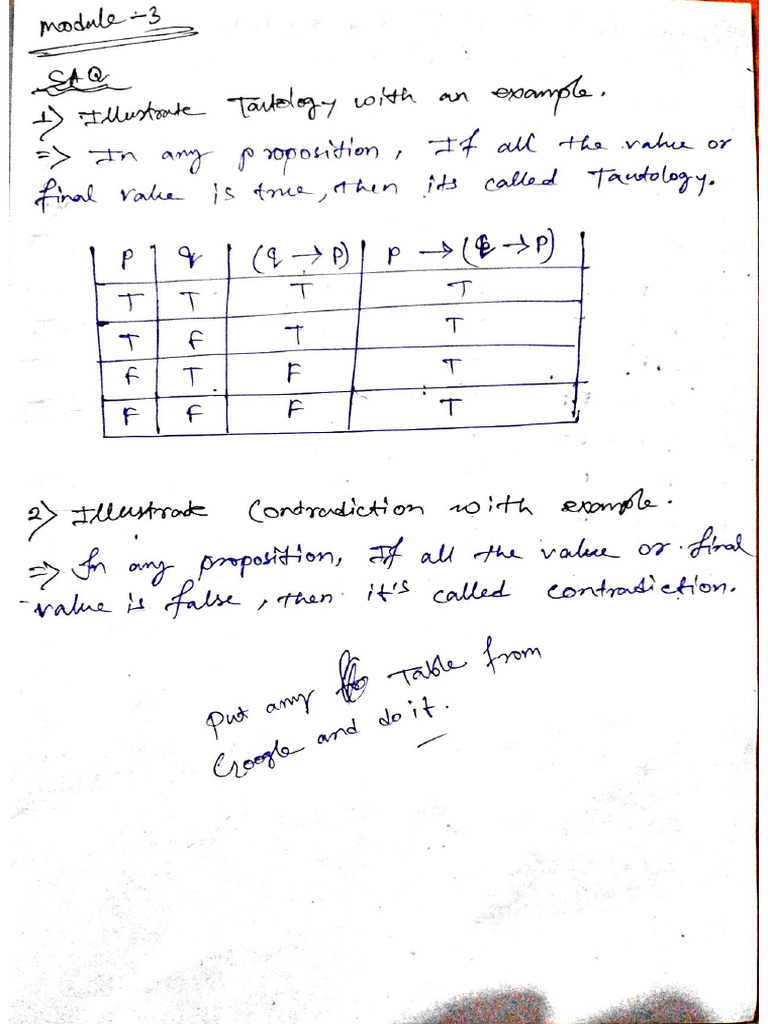 Module - 3
SAQ
1) Illustrate Tautology with an example.
=> In any proposition, If all the value or
final value is true, then its called Tautology.
P q (q → P) P → (q → P)
T T T T
T F T T
F T F T
F F F T
2) Illustrate Contradiction with example.
=> In any proposition, If all the value or final
value is false, then it's called contradiction.
Put any Table from
Google and do it.